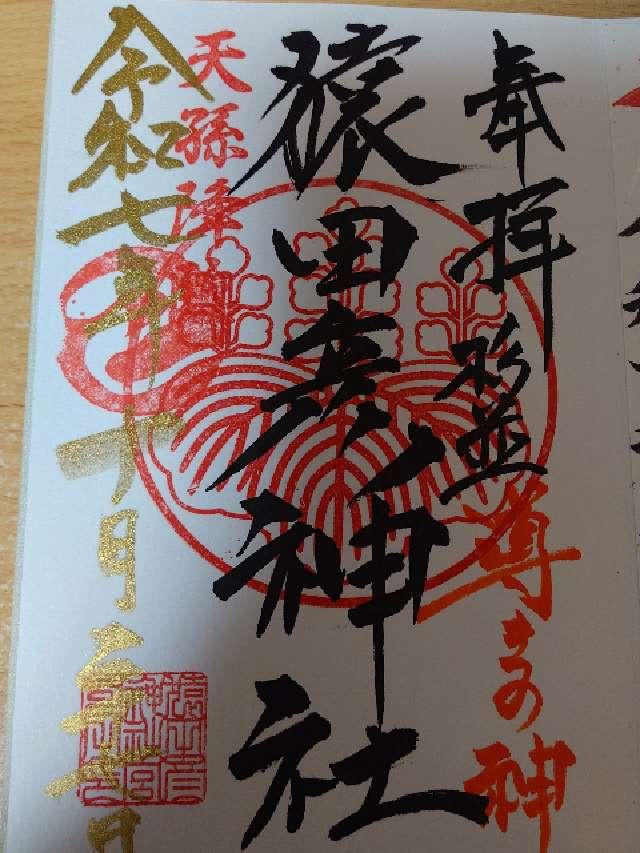 奉拝 杉並 導きの神
猿田彦神社
天孫降臨
令和七年十月二十七日